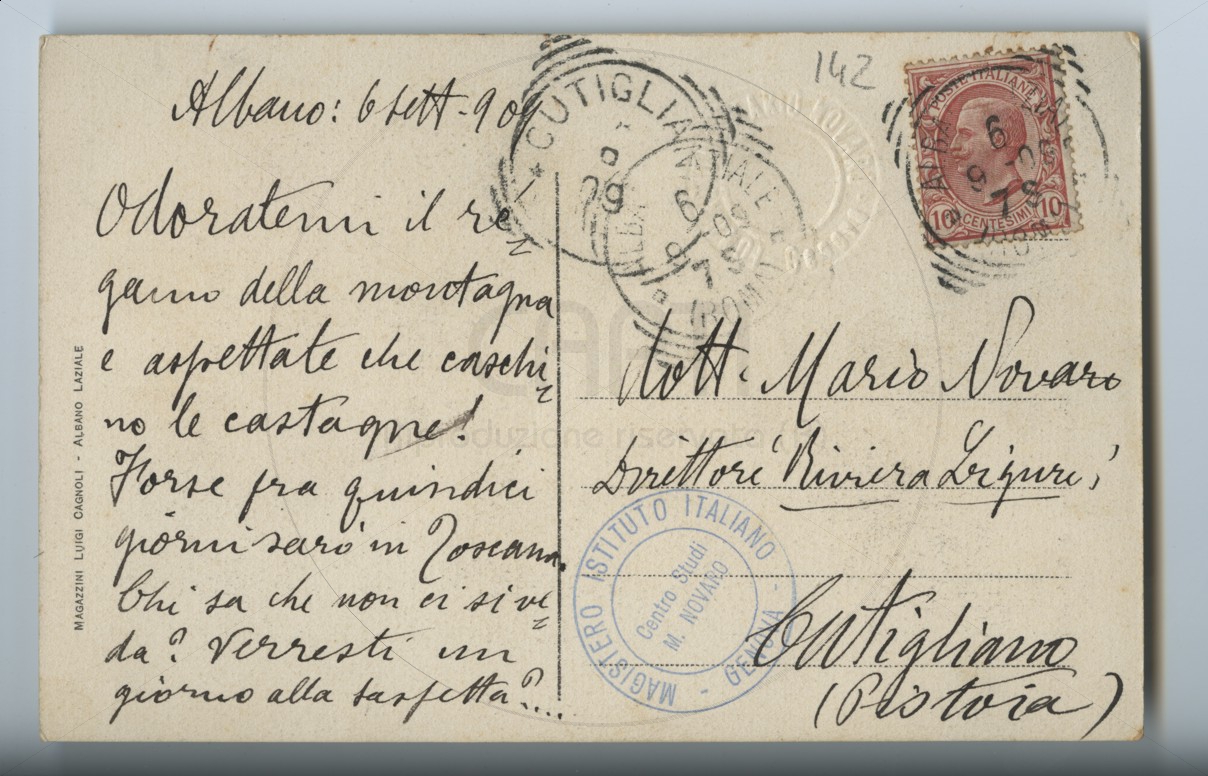 142
Albano: 6 sett. 909
Odoratemi il re=
gamo della montagna
e aspettate che caschi=
no le castagne!
Forse fra quindici
giorni sarò in Toscana.
Chi sa che non ci si ve=
da? Verresti un
giorno alla
dott. Mario Novaro
Direttore 'Riviera Ligure'
Cutigliano
(Pistoia)
MAGAZZINI LUIGI CAGNOLI - ALBANO LAZIALE
CUTIGLIA
POSTE ITALIANE
10 CENTESIMI 10
6
9 09
7 S
ALBA ZIALE
6 09
9 7 S
(ROMA)
MAGISTERO ISTITUTO ITALIANO - GENOVA -
Centro Studi
M. NOVARO
riproduzione riservata